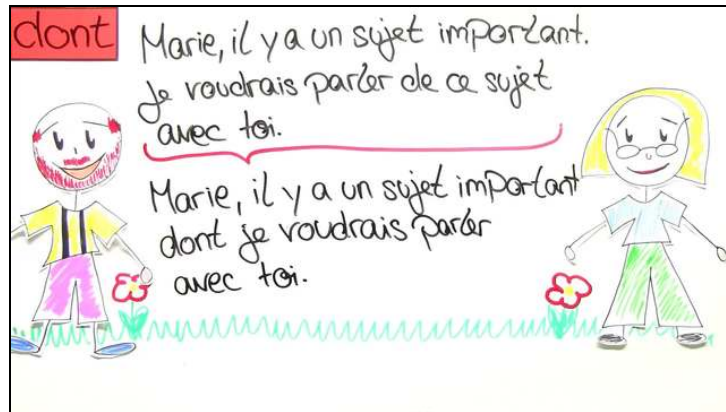 dont
Marie, il y a un sujet important.
Je voudrais parler de ce sujet
avec toi.
Marie, il y a un sujet important
dont je voudrais parler
avec toi.